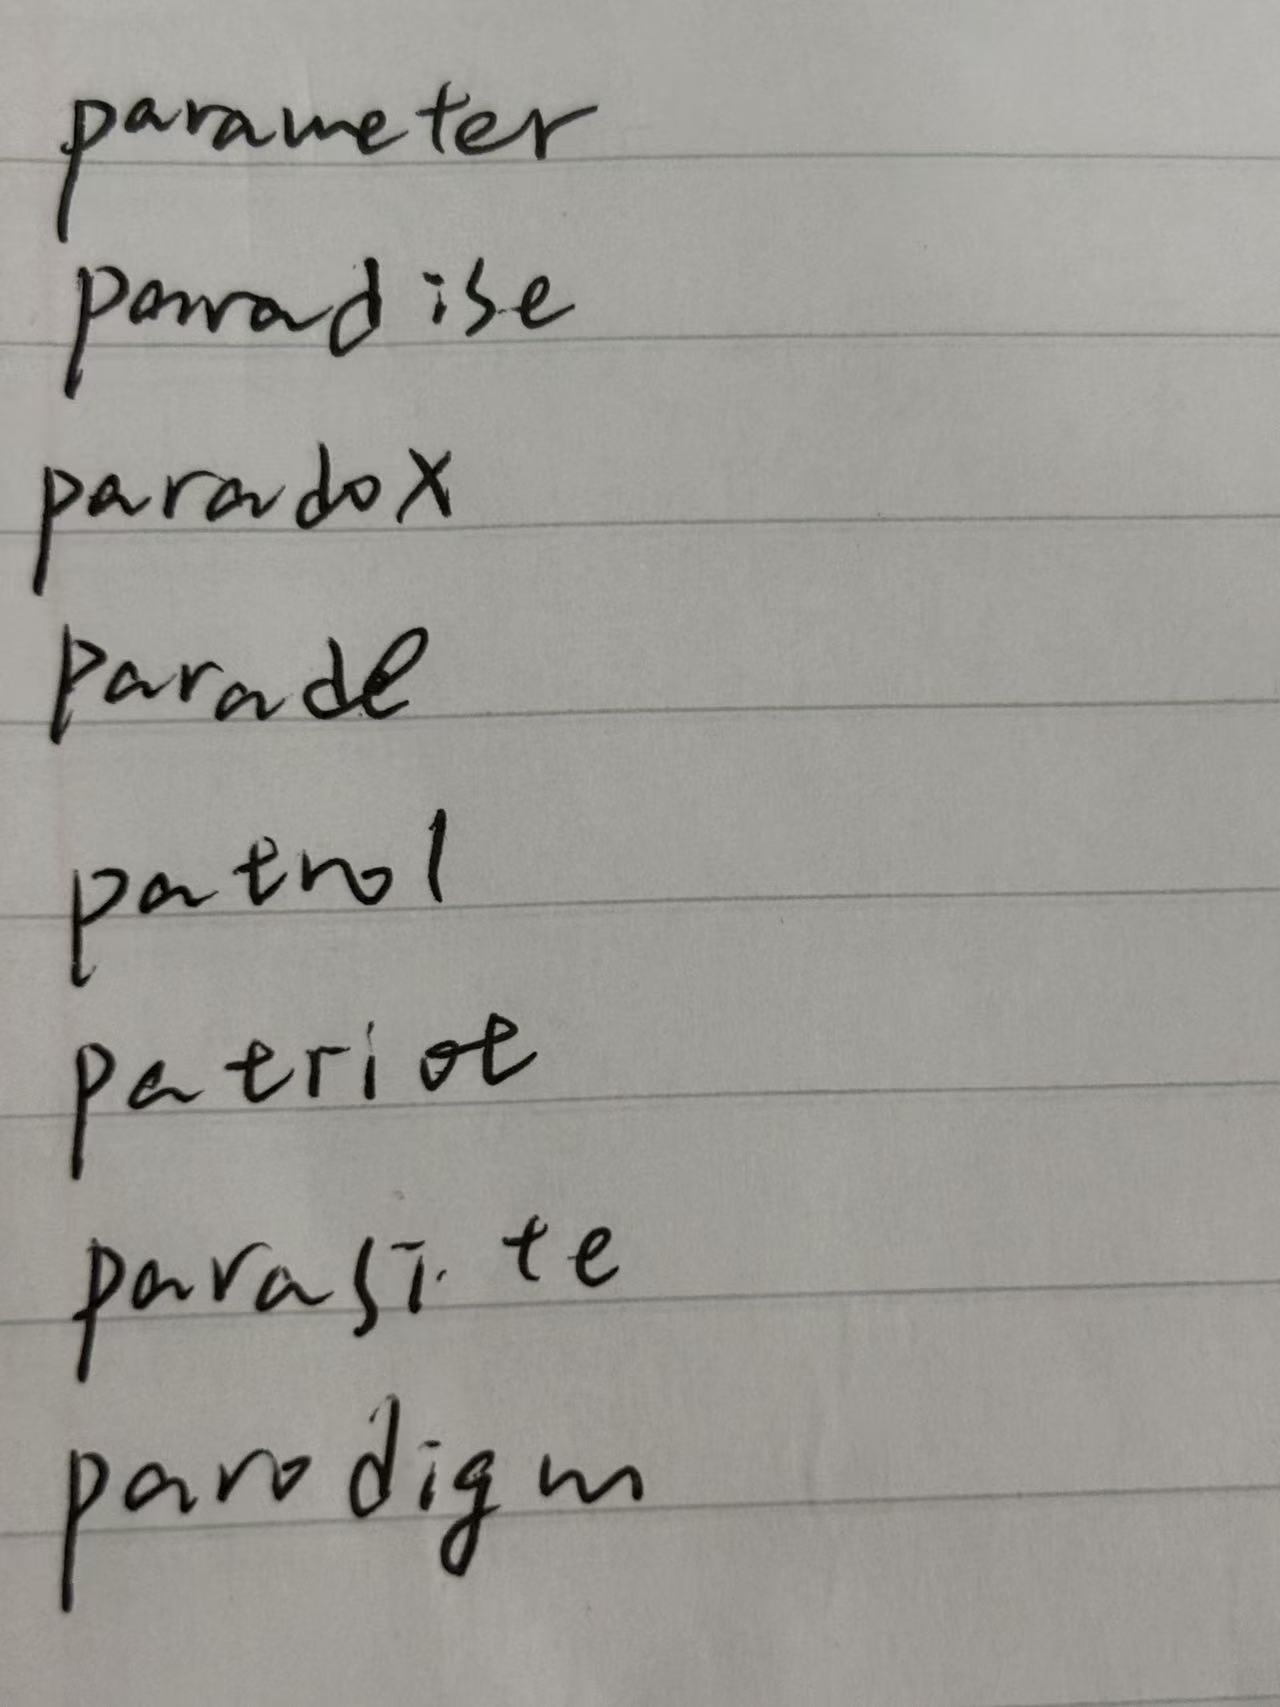 parameter
paradise
paradox
parade
patrol
patriot
parasite
parodigm